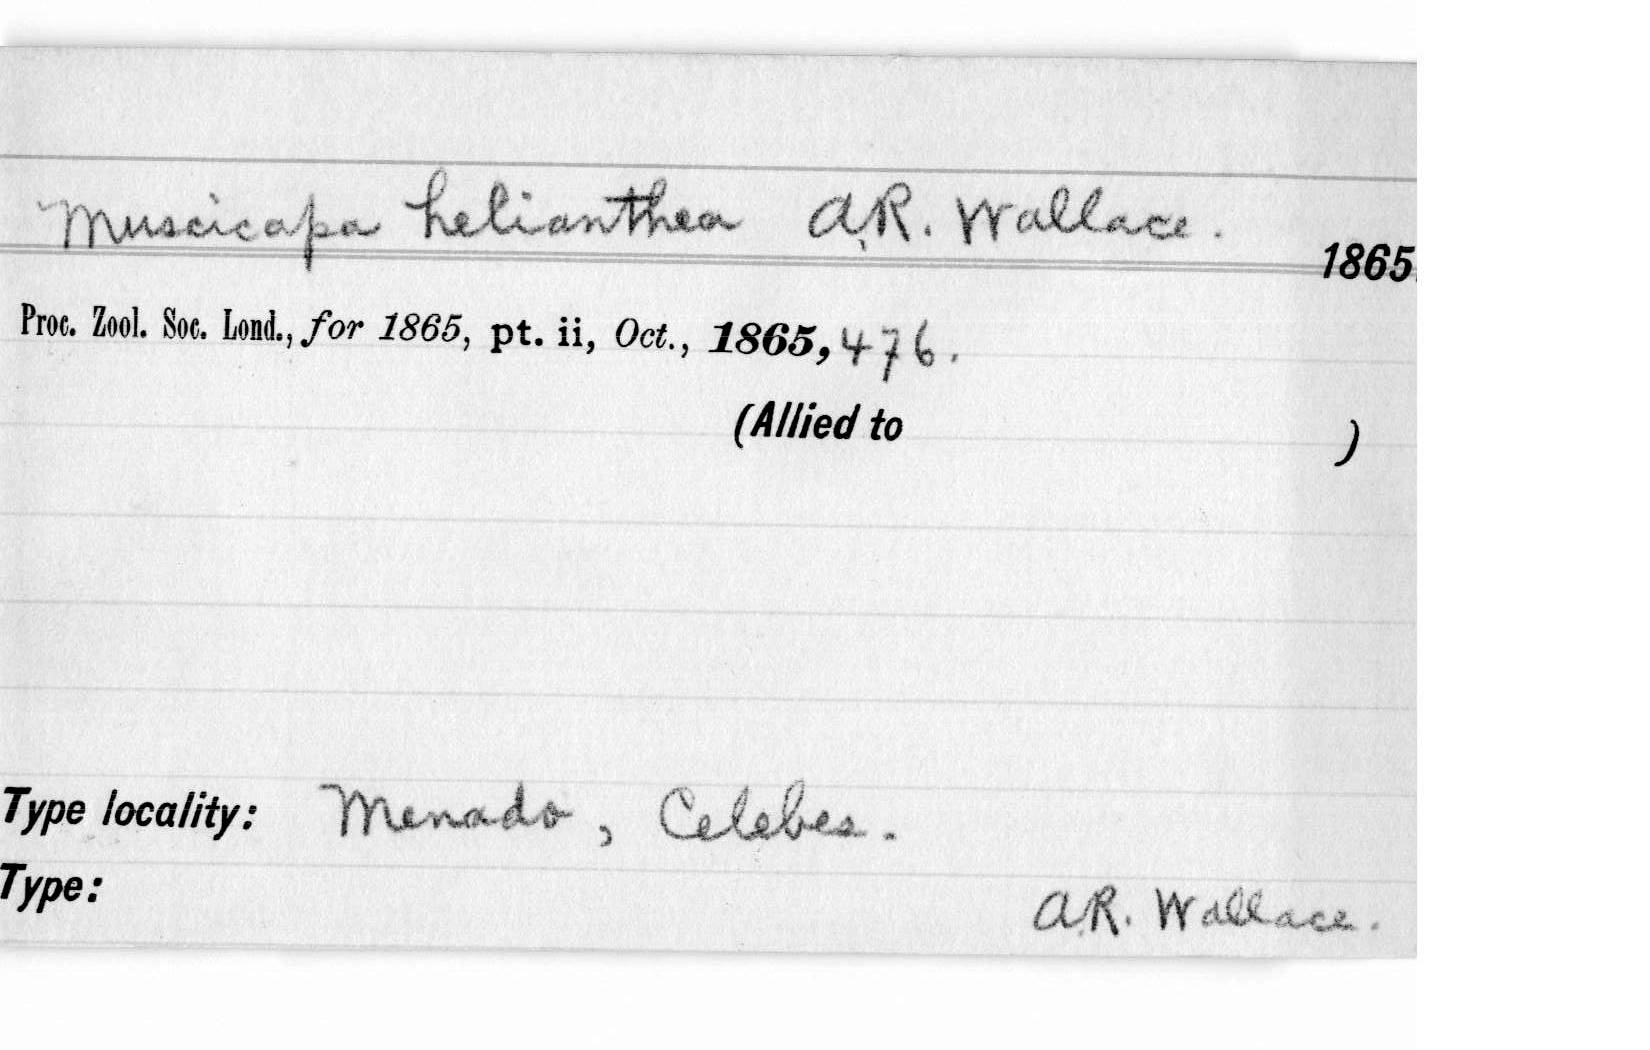 Muscicapa helianthea A.R. Wallace. 1865.
Proc. Zool. Soc. Lond., for 1865, pt. ii, Oct., 1865, 476.
(Allied to )
Type locality: Menado, Celebes.
Type: A.R. Wallace.